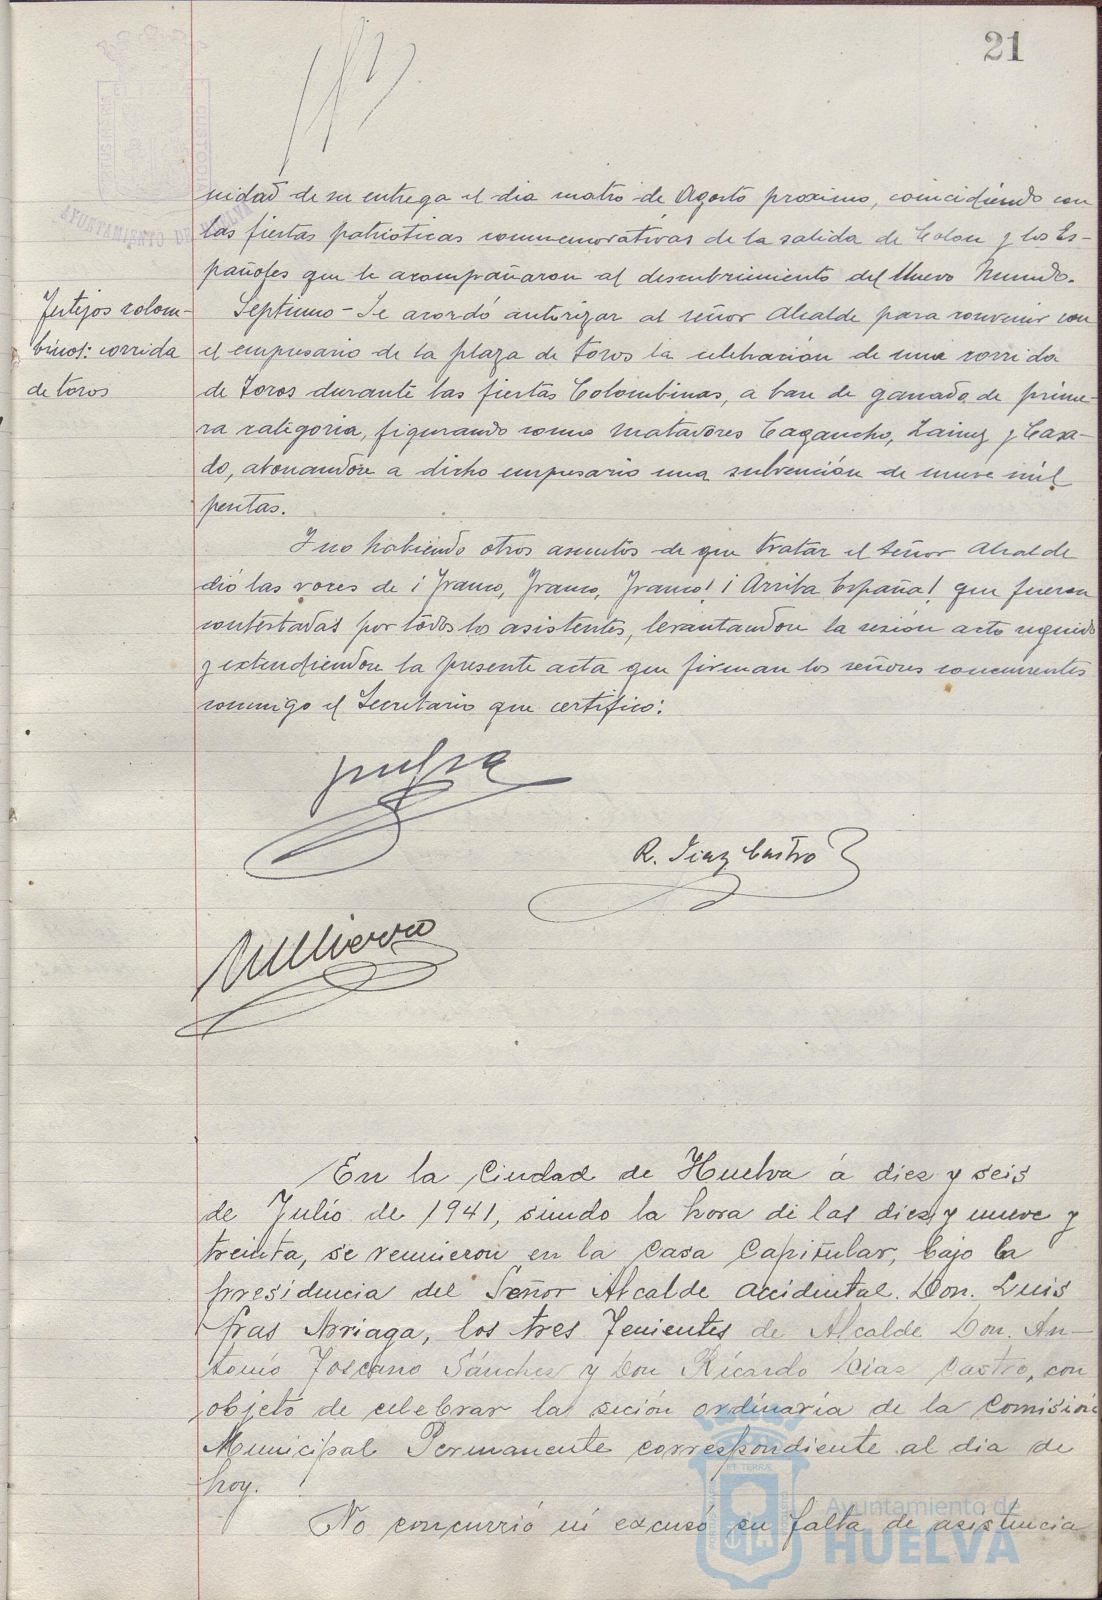 21
nidad de su entrega el dia cuatro de Agosto proximo, coincidiendo con
las fiestas patrioticas conmemorativas de la salida de Colon y los Es-
pañoles que le acompañaron al descubrimiento del Nuevo Mundo.
Festejos colom-
binos: corrida
de toros
Septimo - Se acordó autorizar al señor Alcalde para convenir con
el empresario de la plaza de toros la celebración de una corrida
de toros durante las fiestas Colombinas, a base de ganado de prime-
ra categoria, figurando como matadores Cagancho, y Casa-
do, abonandose a dicho empresario una subvención de nueve mil
pesetas.
Y no habiendo otros asuntos de que tratar el señor Alcalde
dió las voces de ¡Franco, Franco, Franco! ¡Arriba España! que fueron
contestadas por todos los asistentes, levantandose la sesión acto seguido
y extendiendose la presente acta que firman los señores concurrentes
conmigo el Secretario que certifico:
R. Diaz Castro
En la Ciudad de Huelva á diez y seis
de Julio de 1941, siendo la hora de las diez y nueve y
treinta, se reunieron en la Casa Capitular, bajo la
presidencia del Señor Alcalde accidental. Don. Luis
Fras Arriaga, los tres Tenientes de Alcalde Don. An-
tonio Toscano Sánchez y Don Ricardo Diaz Castro, con
objeto de celebrar la seción ordinaria de la Comisión
Municipal Permanente correspondiente al dia de
hoy.
No concurrió ni excusó su falta de asistencia
Ayuntamiento de
HUELVA